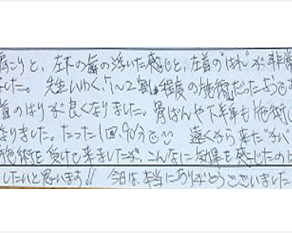 肩こりと、左下の歯の浮いた感じと、左首の"はれ"が非常
ました。先生いわく、"1〜2割程度の施術"だったようで
首のはりが良くなりました。骨ばんや下半身も施術し
なりました。たった1回90分で 遠くから来た
施術を受けて来ましたが、こんなに効果を感じたのは
したいと思います!! 今日は本当にありがとうございました